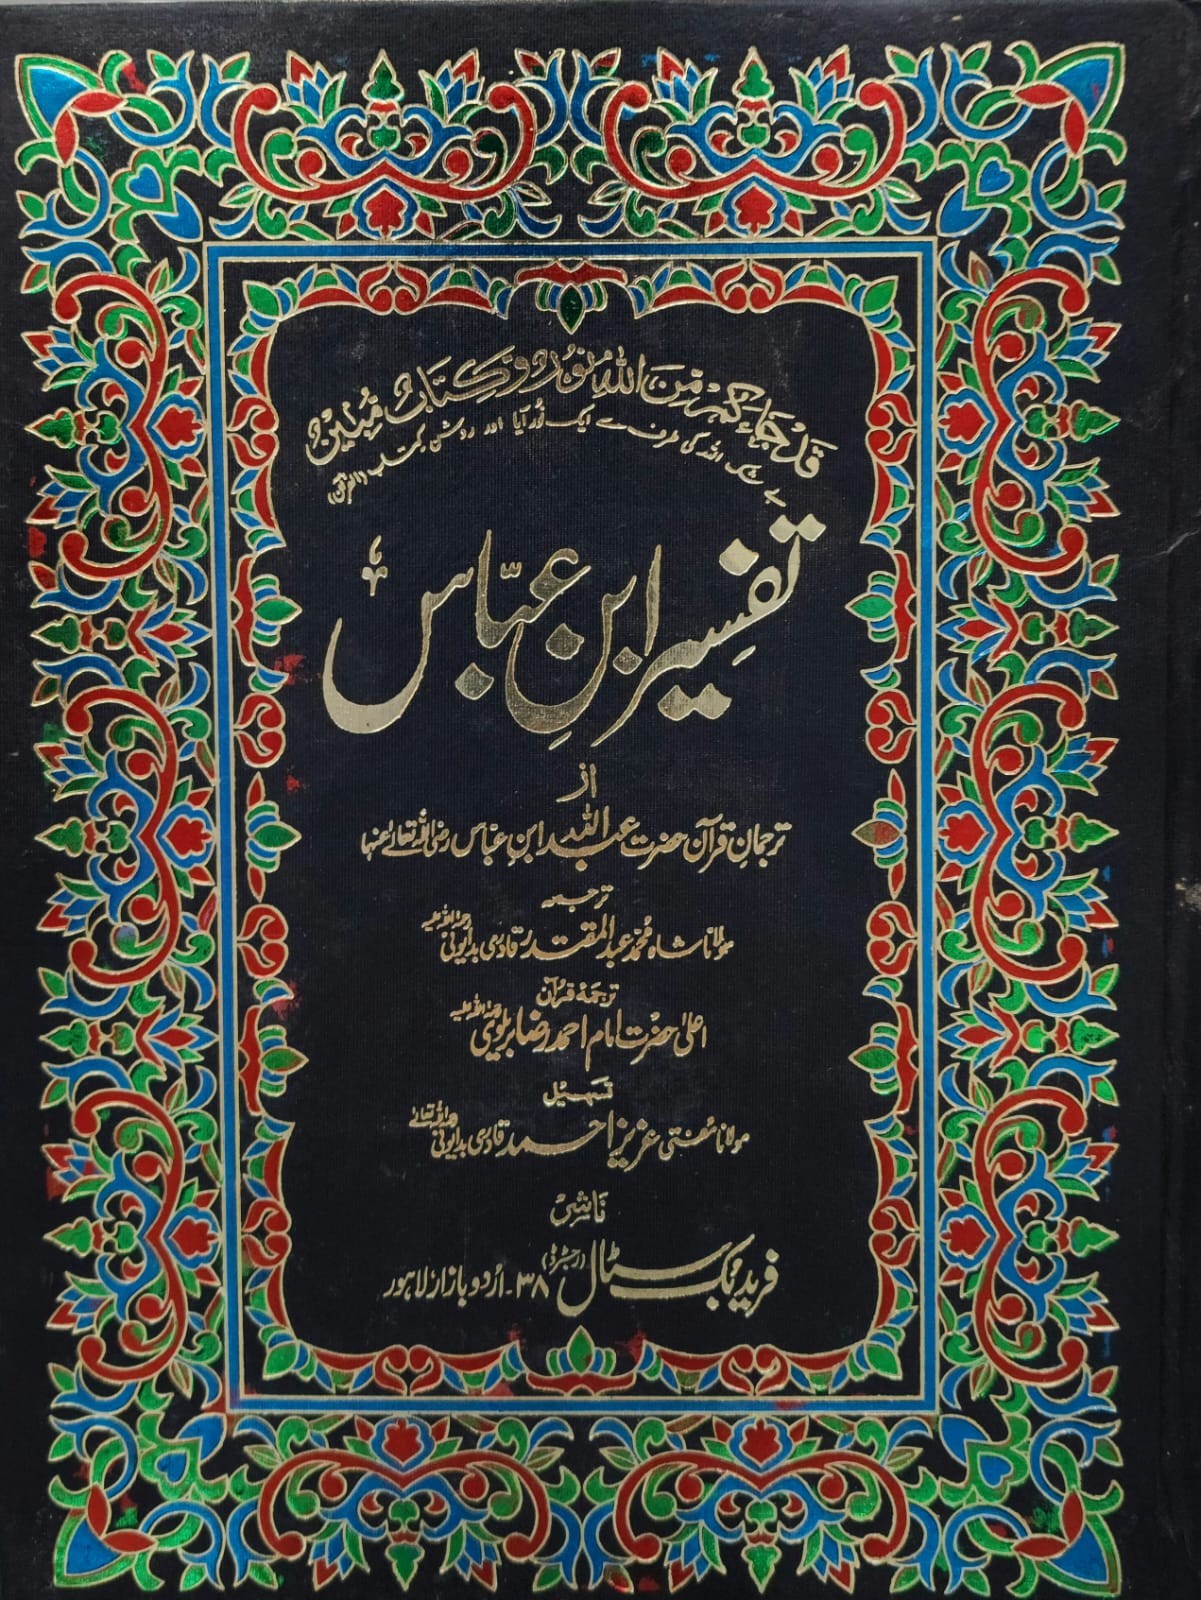 قَدْ جَاءَكُمْ مِنَ اللّٰهِ نُوْرٌ وَّكِتَابٌ مُّبِيْنٌ
بے شک اللہ کی طرف سے ایک نور آیا اور روشن کتاب (القرآن)
تفسیر ابنِ عبّاسؓ
از
ترجمانِ قرآن حضرت عبداللہ ابنِ عبّاس رضی اللہ تعالیٰ عنہما
ترجمہ
مولانا شاہ محمد عبدالمقتدر قادری بدایونی رحمۃ اللہ علیہ
ترجمۂ قرآن
اعلیٰ حضرت امام احمد رضا بریلوی رحمۃ اللہ علیہ
تسہیل
مولانا مفتی عزیز احمد قادری بدایونی رحمہ اللہ تعالیٰ
ناشر
فرید بک سٹال (رجسٹرڈ) ۳۸۔ اُردو بازار لاہور